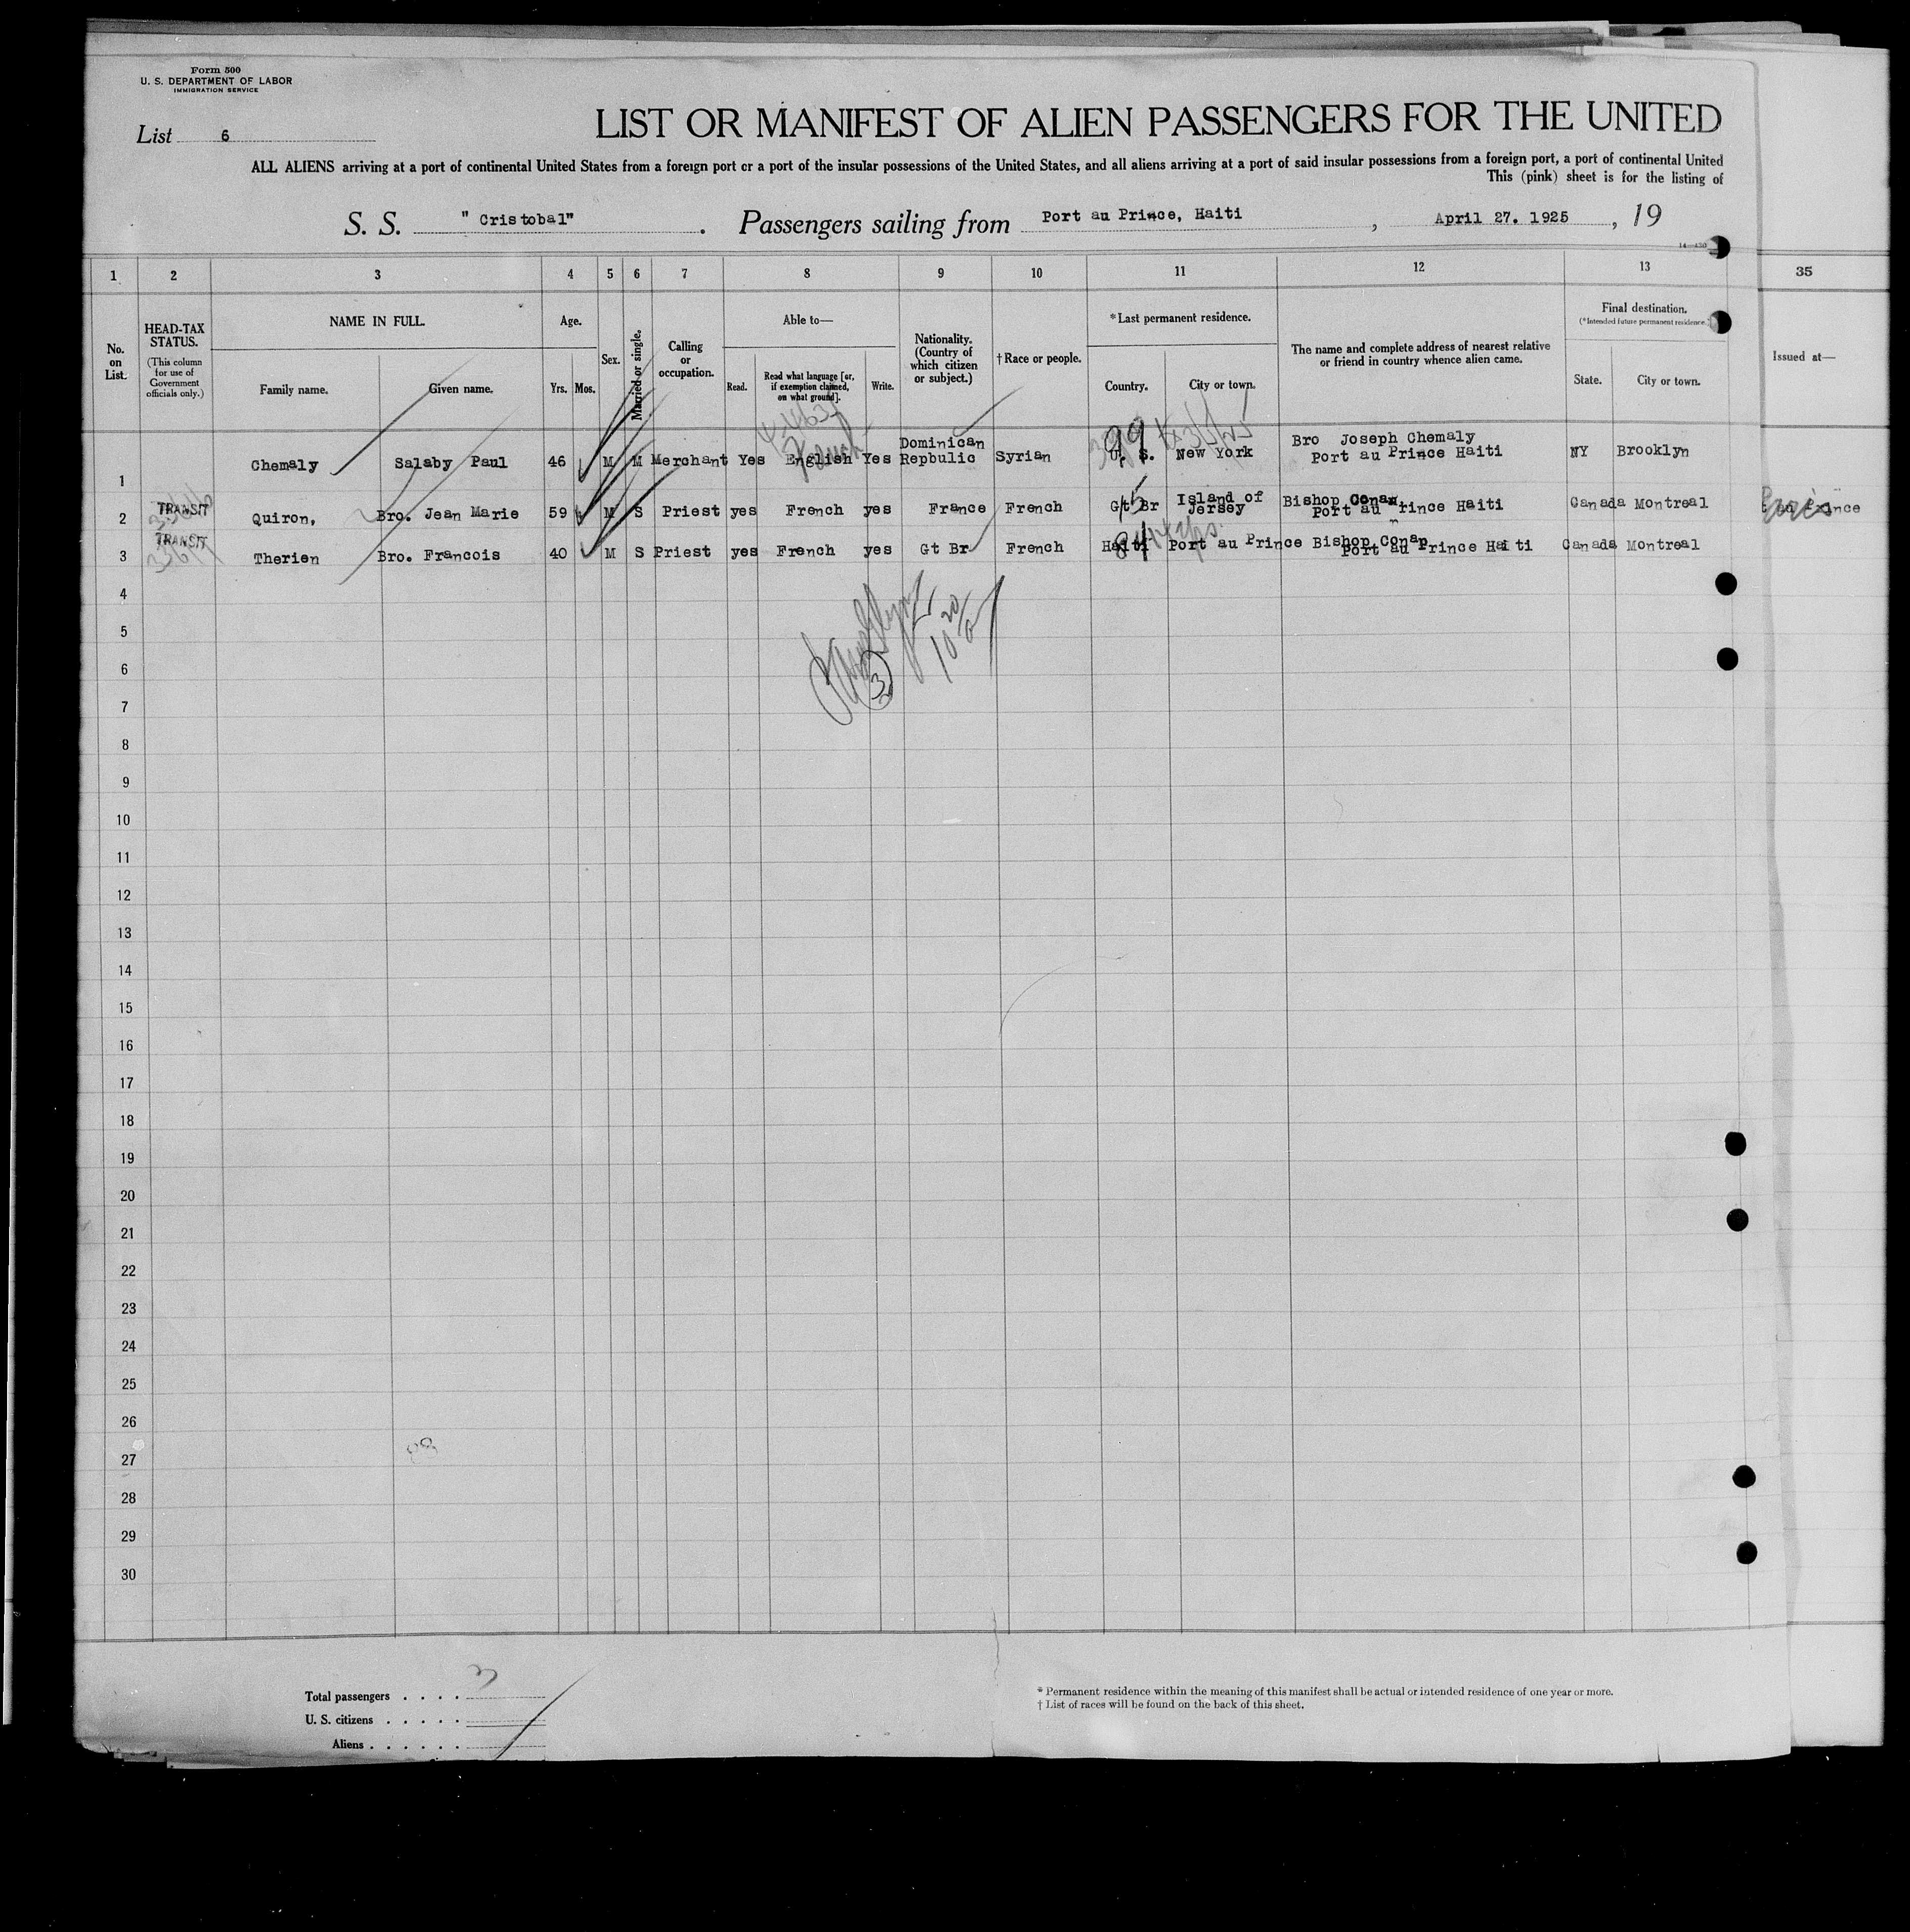 Form 500
U. S. DEPARTMENT OF LABOR
IMMIGRATION SERVICE
List 6
LIST OR MANIFEST OF ALIEN PASSENGERS FOR THE UNITED
ALL ALIENS arriving at a port of continental United States from a foreign port or a port of the insular possessions of the United States, and all aliens arriving at a port of said insular possessions from a foreign port, a port of continental United
This (pink) sheet is for the listing of
S. S. " Cristobal" . Passengers sailing from Port au Prince, Haiti , April 27. 1925 , 19
1 2 3 4 5 6 7 8 9 10 11 12 13 35
No. on List.
HEAD-TAX STATUS.
(This column for use of Government officials only.)
NAME IN FULL.
Family name. Given name.
Age.
Yrs. Mos.
Sex.
Married or single.
Calling or occupation.
Able to—
Read. Read what language [or, if exemption claimed, on what ground]. Write.
Nationality. (Country of which citizen or subject.)
† Race or people.
* Last permanent residence.
Country. City or town.
The name and complete address of nearest relative or friend in country whence alien came.
Final destination.
(* Intended future permanent residence.)
State. City or town.
Issued at—
1 Chemaly Salaby Paul 46 M M Merchant Yes English Yes Dominican Repbulic Syrian U. S. New York Bro Joseph Chemaly Port au Prince Haiti NY Brooklyn
French
99
2 TRANSIT Quiron, Bro. Jean Marie 59 M S Priest yes French yes France French Gt Br Island of Jersey Bishop Conan Port au Prince Haiti Canada Montreal
3 TRANSIT Therien Bro. Francois 40 M S Priest yes French yes Gt Br French Haiti Port au Prince Bishop Conan Port au Prince Haiti Canada Montreal
84
4
5
3
6
7
8
9
10
11
12
13
14
15
16
17
18
19
20
21
22
23
24
25
26
27
28
29
30
Total passengers . . . . 3
U. S. citizens . . . . .
Aliens . . . . . .
* Permanent residence within the meaning of this manifest shall be actual or intended residence of one year or more.
† List of races will be found on the back of this sheet.